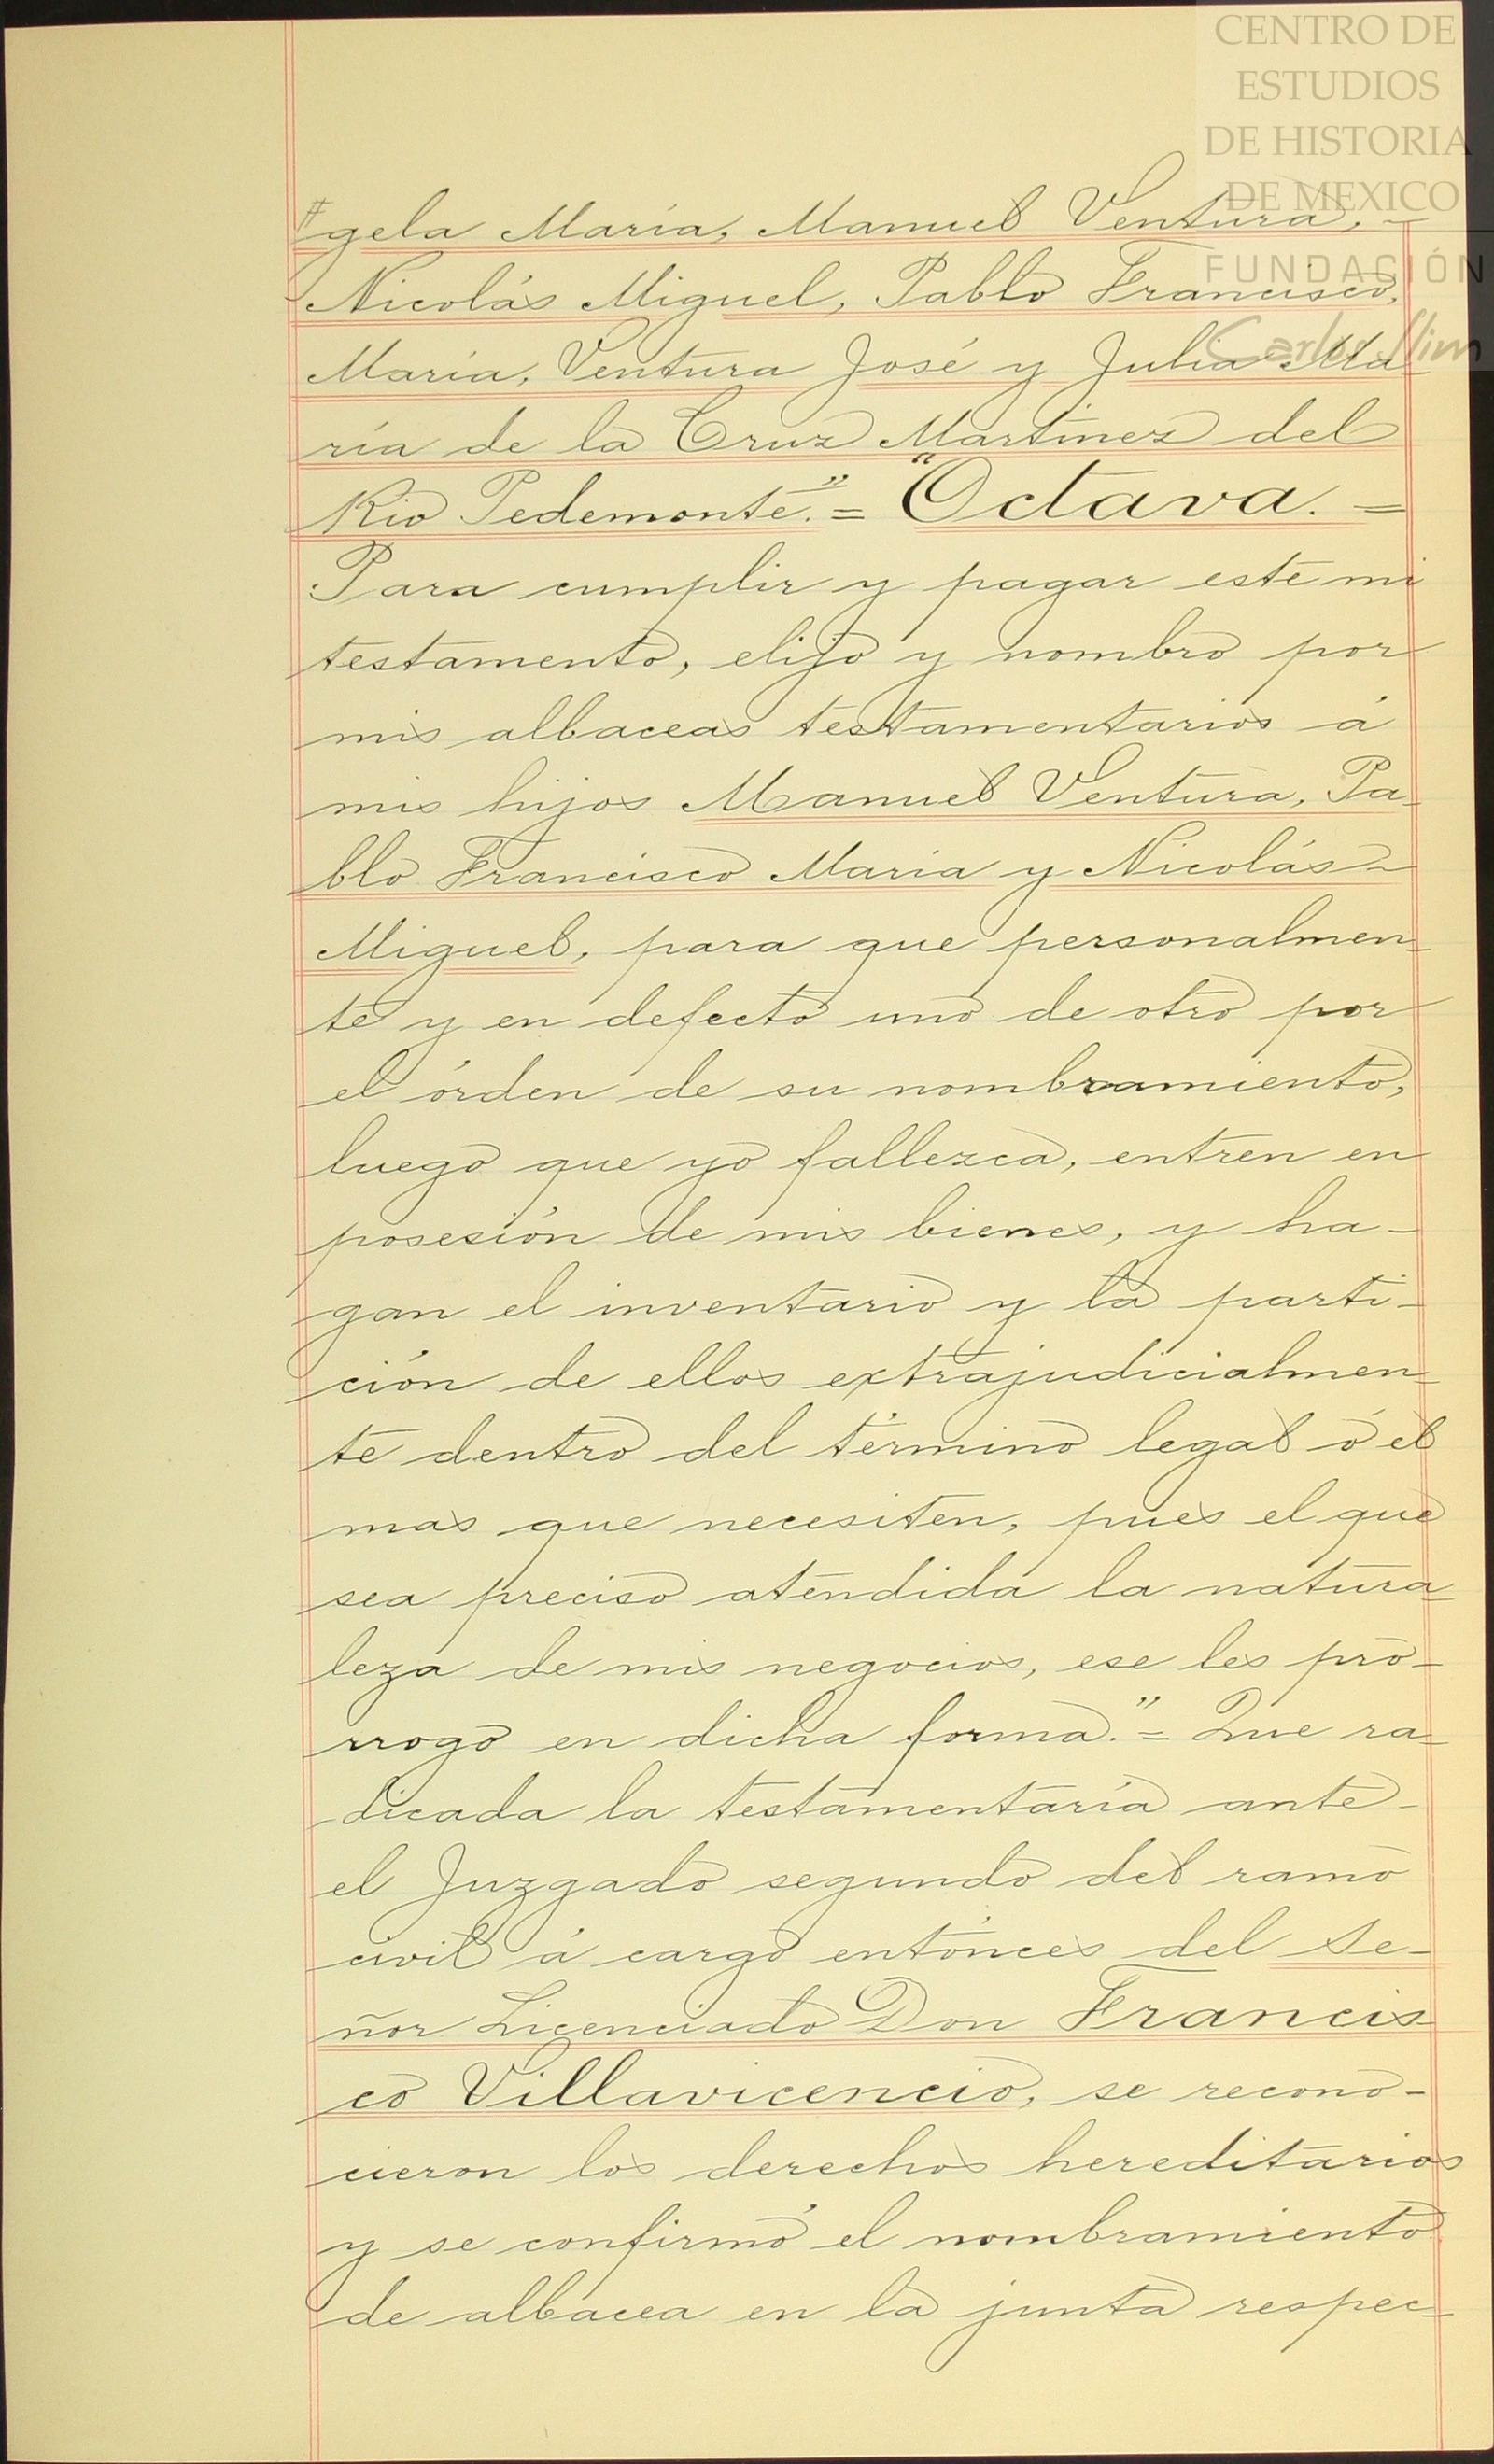 CENTRO DE
ESTUDIOS
DE HISTORIA
DE MEXICO
FUNDACIÓN
Carlos Slim
gela María, Manuel Ventura,
Nicolás Miguel, Pablo Francisco,
María, Ventura José y Julia Ma
ría de la Cruz Martínez del
Rio Pedemonte." = "Octava. =
Para cumplir y pagar este mi
testamento, elijo y nombro por
mis albaceas testamentarios á
mis hijos Manuel Ventura, Pa-
blo Francisco Maria y Nicolás-
Miguel, para que personalmen-
te y en defecto uno de otro por
el órden de su nombramiento,
luego que yo fallezca, entren en
posesión de mis bienes, y ha-
gan el inventario y la parti-
ción de ellos extrajudicialmen-
te dentro del término legal ó el
mas que necesiten, pues el que
sea preciso atendida la natura-
leza de mis negocios, ese les pro-
rrogo en dicha forma." = Que ra-
dicada la testamentaría ante-
el Juzgado segundo del ramo
civil á cargo entónces del Se-
ñor Licenciado Don Francis
co Villavicencio, se recono-
cieron los derechos hereditarios
y se confirmó el nombramiento
de albacea en la junta respec-